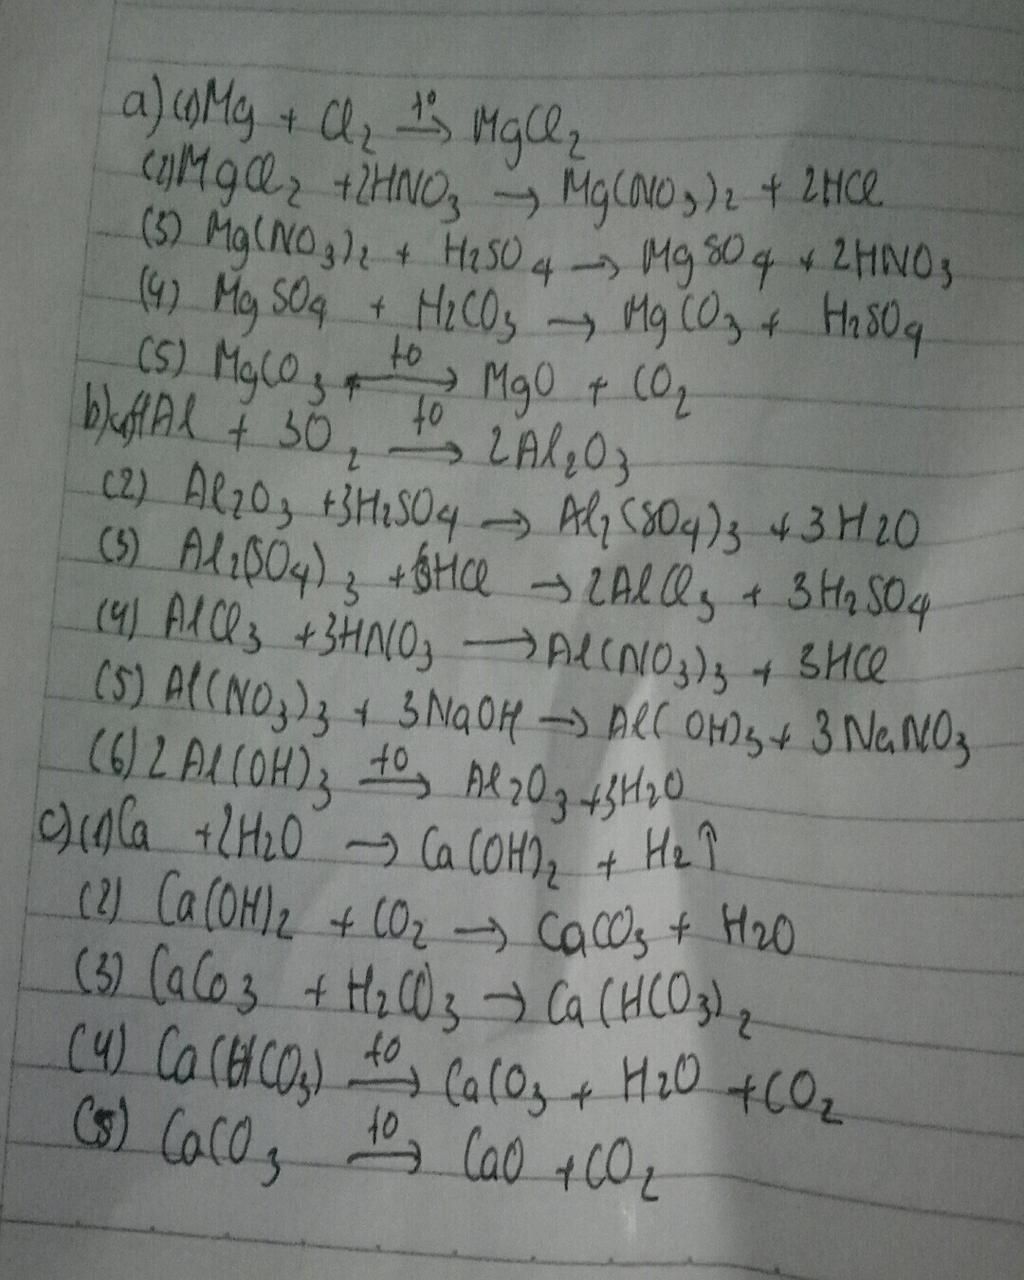 a) (1) Mg + Cl2 t° → MgCl2
(2) MgCl2 + 2HNO3 → Mg(NO3)2 + 2HCl
(3) Mg(NO3)2 + H2SO4 → MgSO4 + 2HNO3
(4) MgSO4 + H2CO3 → MgCO3 + H2SO4
(5) MgCO3 to → MgO + CO2
b) (1) 4Al + 3O2 to → 2Al2O3
(2) Al2O3 + 3H2SO4 → Al2(SO4)3 + 3H2O
(3) Al2(SO4)3 + 6HCl → 2AlCl3 + 3H2SO4
(4) AlCl3 + 3HNO3 → Al(NO3)3 + 3HCl
(5) Al(NO3)3 + 3NaOH → Al(OH)3 + 3NaNO3
(6) 2Al(OH)3 to → Al2O3 + 3H2O
c) (1) Ca + 2H2O → Ca(OH)2 + H2↑
(2) Ca(OH)2 + CO2 → CaCO3 + H2O
(3) CaCo3 + H2CO3 → Ca(HCO3)2
(4) Ca(HCO3) to → CaCO3 + H2O + CO2
(5) CaCO3 to → CaO + CO2